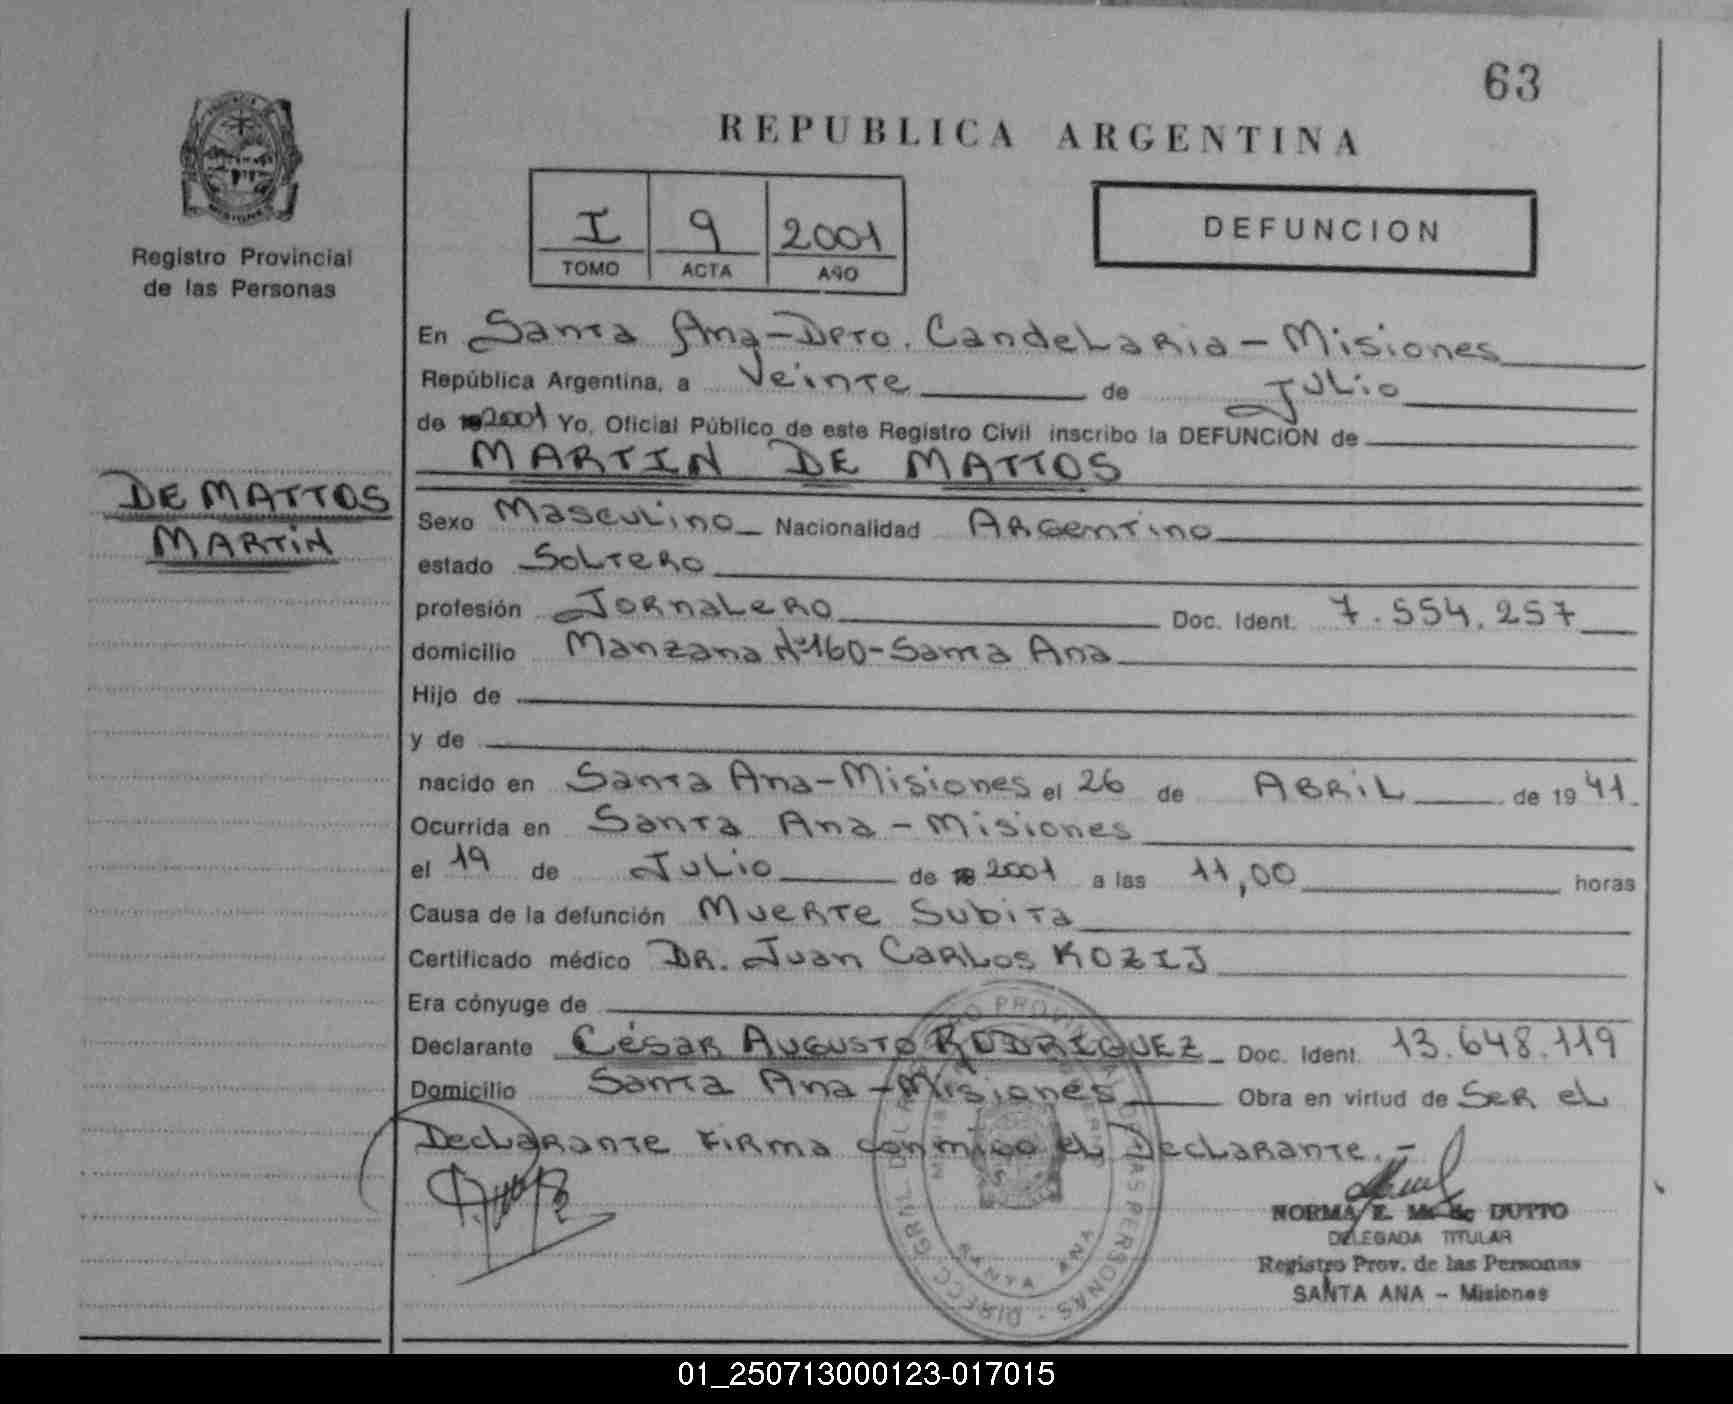 63
REPUBLICA ARGENTINA
I 9 2001
TOMO ACTA AÑO
DEFUNCION
Registro Provincial
de las Personas
DE MATTOS
MARTIN
En Santa Ana-Dpto. Candelaria - Misiones
República Argentina, a Veinte de Julio
de 2001 Yo, Oficial Público de este Registro Civil inscribo la DEFUNCION de
MARTIN DE MATTOS
Sexo Masculino Nacionalidad Argentino
estado Soltero
profesión Jornalero Doc. Ident. 7.554.257
domicilio Manzana Nº160-Santa Ana
Hijo de
y de
nacido en Santa Ana-Misiones el 26 de ABRIL de 1941.
Ocurrida en Santa Ana - Misiones
el 19 de Julio de 2001 a las 11,00 horas
Causa de la defunción Muerte Subita
Certificado médico DR. Juan Carlos KOZIJ
Era cónyuge de
Declarante César Augusto RODRIGUEZ Doc. Ident. 13.648.119
Domicilio Santa Ana-Misiones Obra en virtud de Ser el
Declarante Firma conmigo el Declarante.-
NORMA E. DUTTO
DELEGADA TITULAR
Registro Prov. de las Personas
SANTA ANA - Misiones
SANTA ANA
01_250713000123-017015